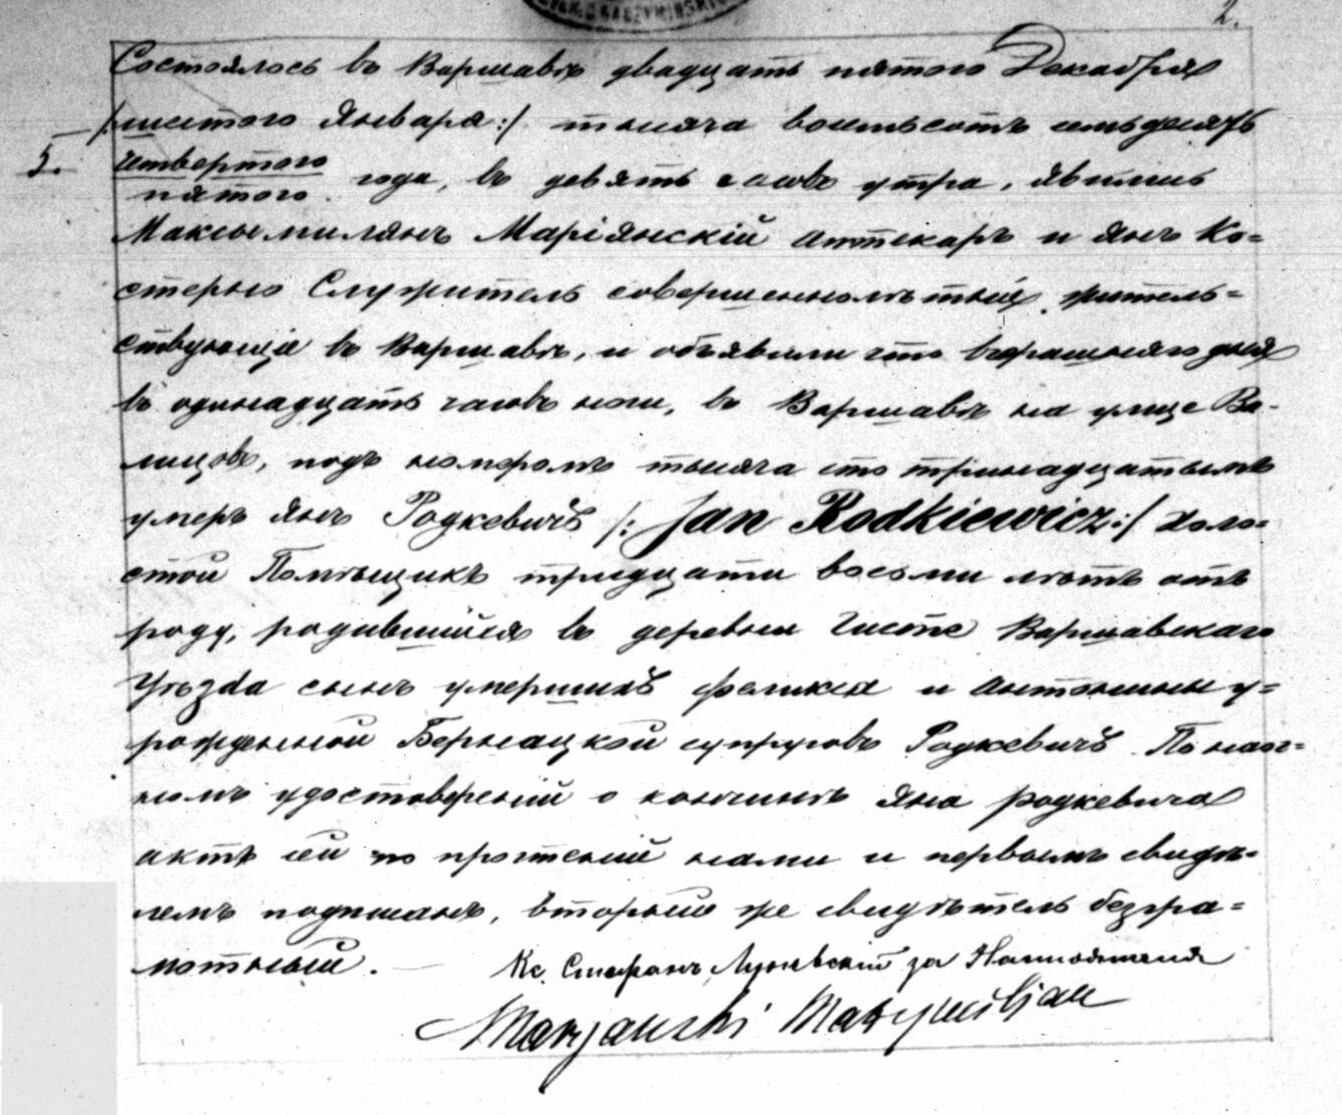 2.
Состоялось въ Варшавѣ двадцать пятого Декабря
/:шестого Января:/ тысяча восемьсотъ семьдесятъ
5. четвертого
пятого года, въ девять часовъ утра, явились
Максымилянъ Маріянскій Аптекаръ и Янъ Ко=
стерно Служитель совершеннолѣтный, житель=
ствующіе въ Варшавѣ, и объявили что вчерашняго дня
въ одинадцать часовъ ночи, въ Варшавѣ на улице Ва-
лицовъ, подъ номеромъ тысяча сто тринадцатымъ
умеръ Янъ Родкевичъ /: Jan Rodkiewicz:/ холо=
стой Помѣщикъ тридцати восьми лѣтъ отъ
роду, родившійся въ деревни Чисте Варшавскаго
Уѣзda сынъ умершихъ Феликса и Антонины у=
рожденной Бернацкой супруговъ Родкевичъ. По наоч=
номъ удостовѣреній о кончинѣ Яна Родкевича
актъ сей по протеній нами и первымъ свидѣ=
лемъ подписанъ, вторый же свидѣтель безгра=
мотный.
Кс. Стефанъ за Настоятеля
Maryanski Maxymiljan